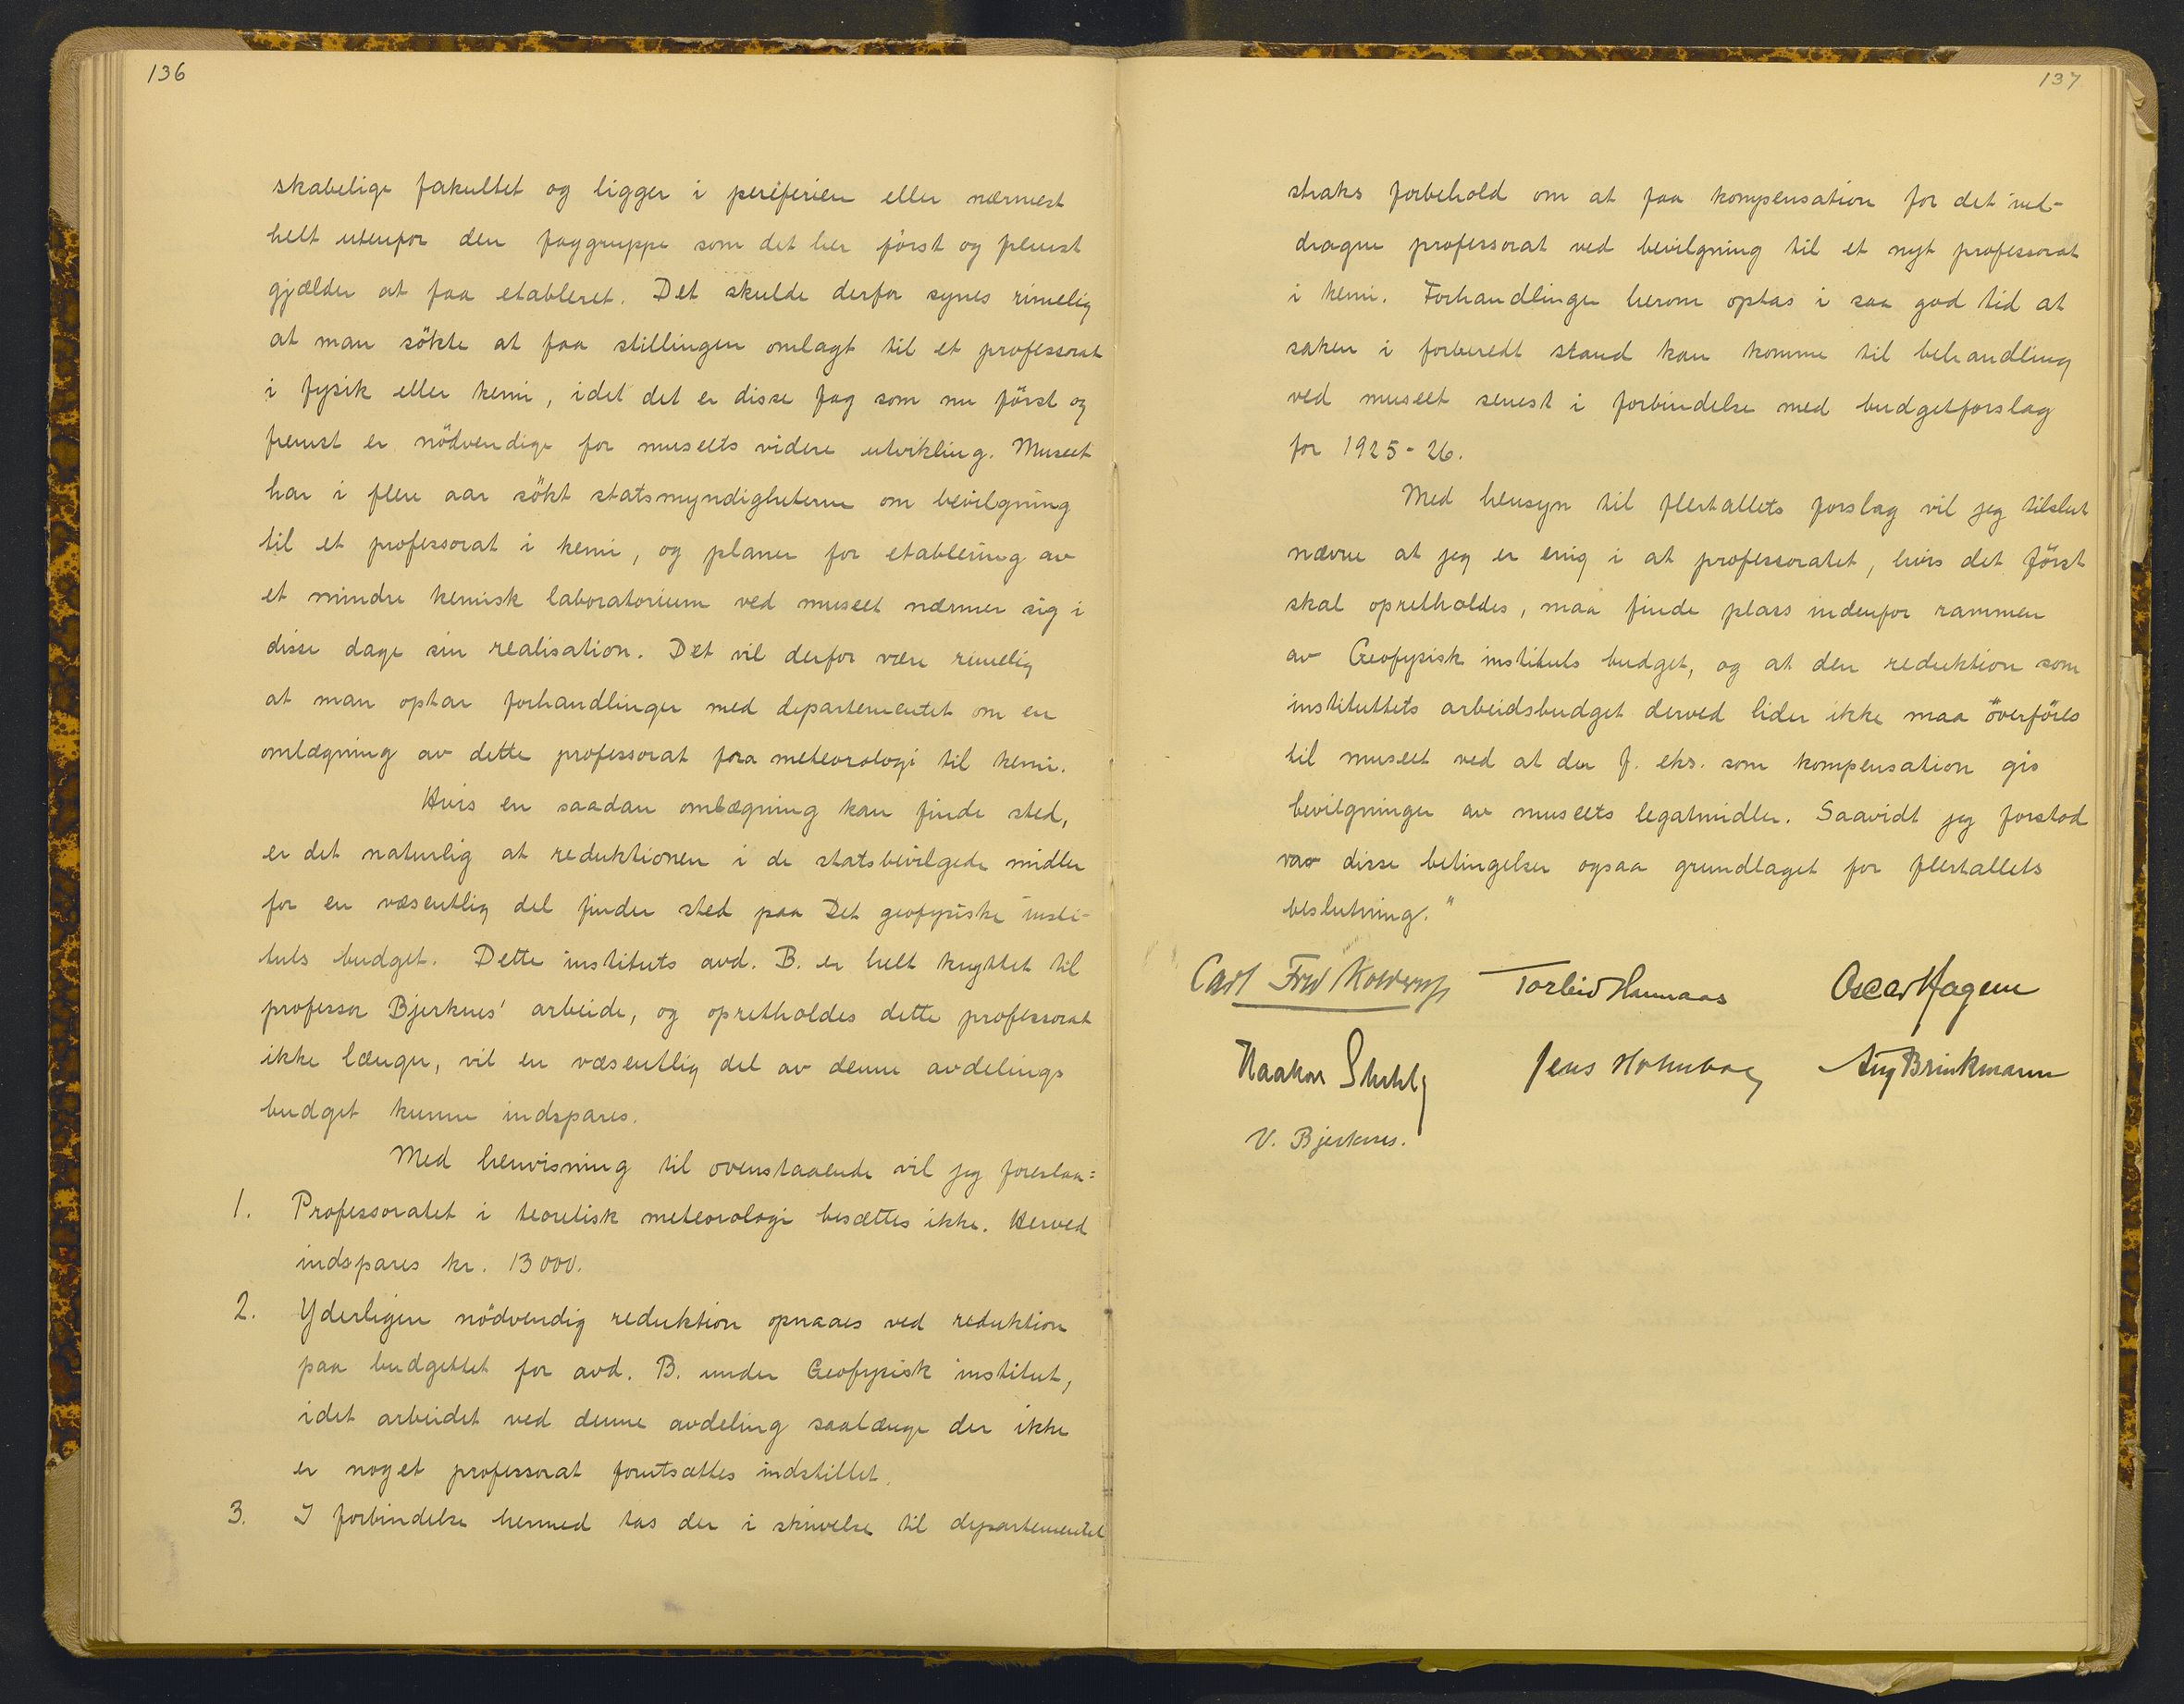 136
skabelige fakultet og ligger i periferien eller nærmest
helt utenfor den faggruppe som det her först og fremst
gjælder at faa etableret. Det skulde derfor synes rimelig
at man sökte at faa stillingen omlagt til et professorat
i fysik eller kemi, idet det er disse fag som nu först og
fremst er nödvendige for museets videre utvikling. Museet
har i flere aar sökt statsmyndigheterne om bevilgning
til et professorat i kemi, og planer for etablering av
et mindre kemisk laboratorium ved museet nærmer sig i
disse dage sin realisation. Det vil derfor være rimelig
at man optar forhandlinger med departementet om en
omlægning av dette professorat fra meteorologi til kemi.
Hvis en saadan omlægning kan finde sted,
er det naturlig at reduktionen i de statsbevilgede midler
for en væsentlig del finder sted paa Det geofysiske insti-
tuts budget. Dette instituts avd. B. er helt knyttet til
professor Bjerknes' arbeide, og opretholdes dette professorat
ikke længer, vil en væsentlig del av denne avdelings
budget kunne indspares.
Med henvisning til ovenstaaende vil jeg foreslaa:
1. Professoratet i teoretisk meteorologi besættes ikke. Herved
indspares kr. 13000.
2. Yderligere nödvendig reduktion opnaaes ved reduktion
paa budgettet for avd. B. under Geofysisk institut,
idet arbeidet ved denne avdeling saalænge der ikke
er noget professorat forutsættes indstillet.
3. I forbindelse hermed tas der i skrivelse til departementet
137
straks forbehold om at faa kompensation for det ind-
dragne professorat ved bevilgning til et nyt professorat
i kemi. Forhandlinger herom optas i saa god tid at
saken i forberedt stand kan komme til behandling
ved museet senest i forbindelse med budgetforslag
for 1925-26.
Med hensyn til flertallets forslag vil jeg tilslut
nævne at jeg er enig i at professoratet, hvis det först
skal opretholdes, maa finde plass indenfor rammen
av Geofysisk instituts budget, og at den reduktion som
instituttets arbeidsbudget derved lider ikke maa överföres
til museet ved at der f. eks. som kompensation gis
bevilgninger av museets legatmidler. Saavidt jeg forstod
var disse betingelser ogsaa grundlaget for flertallets
beslutning."
Carl Fred Kolderup Torleiv Hannaas Oscar Hagem
Haakon Shetelig Jens Holmboe Aug Brinkmann
V. Bjerknes.